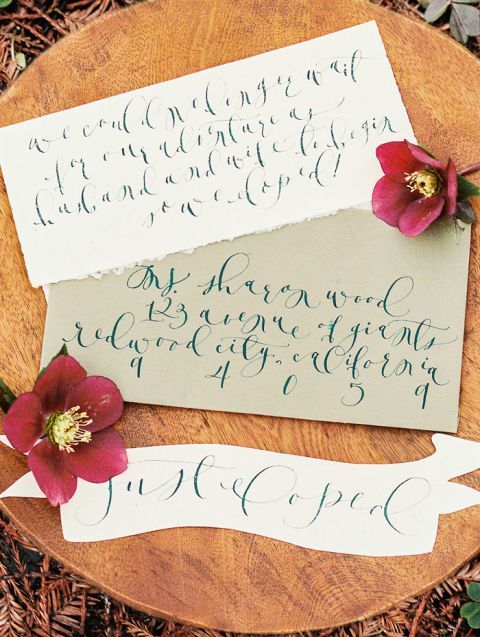 we could no longer wait
for our adventure as
husband and wife to begin
so we eloped!
Ms. sharon wood
123 avenue of giants
redwood city, california
9 4 0 5 9
just eloped